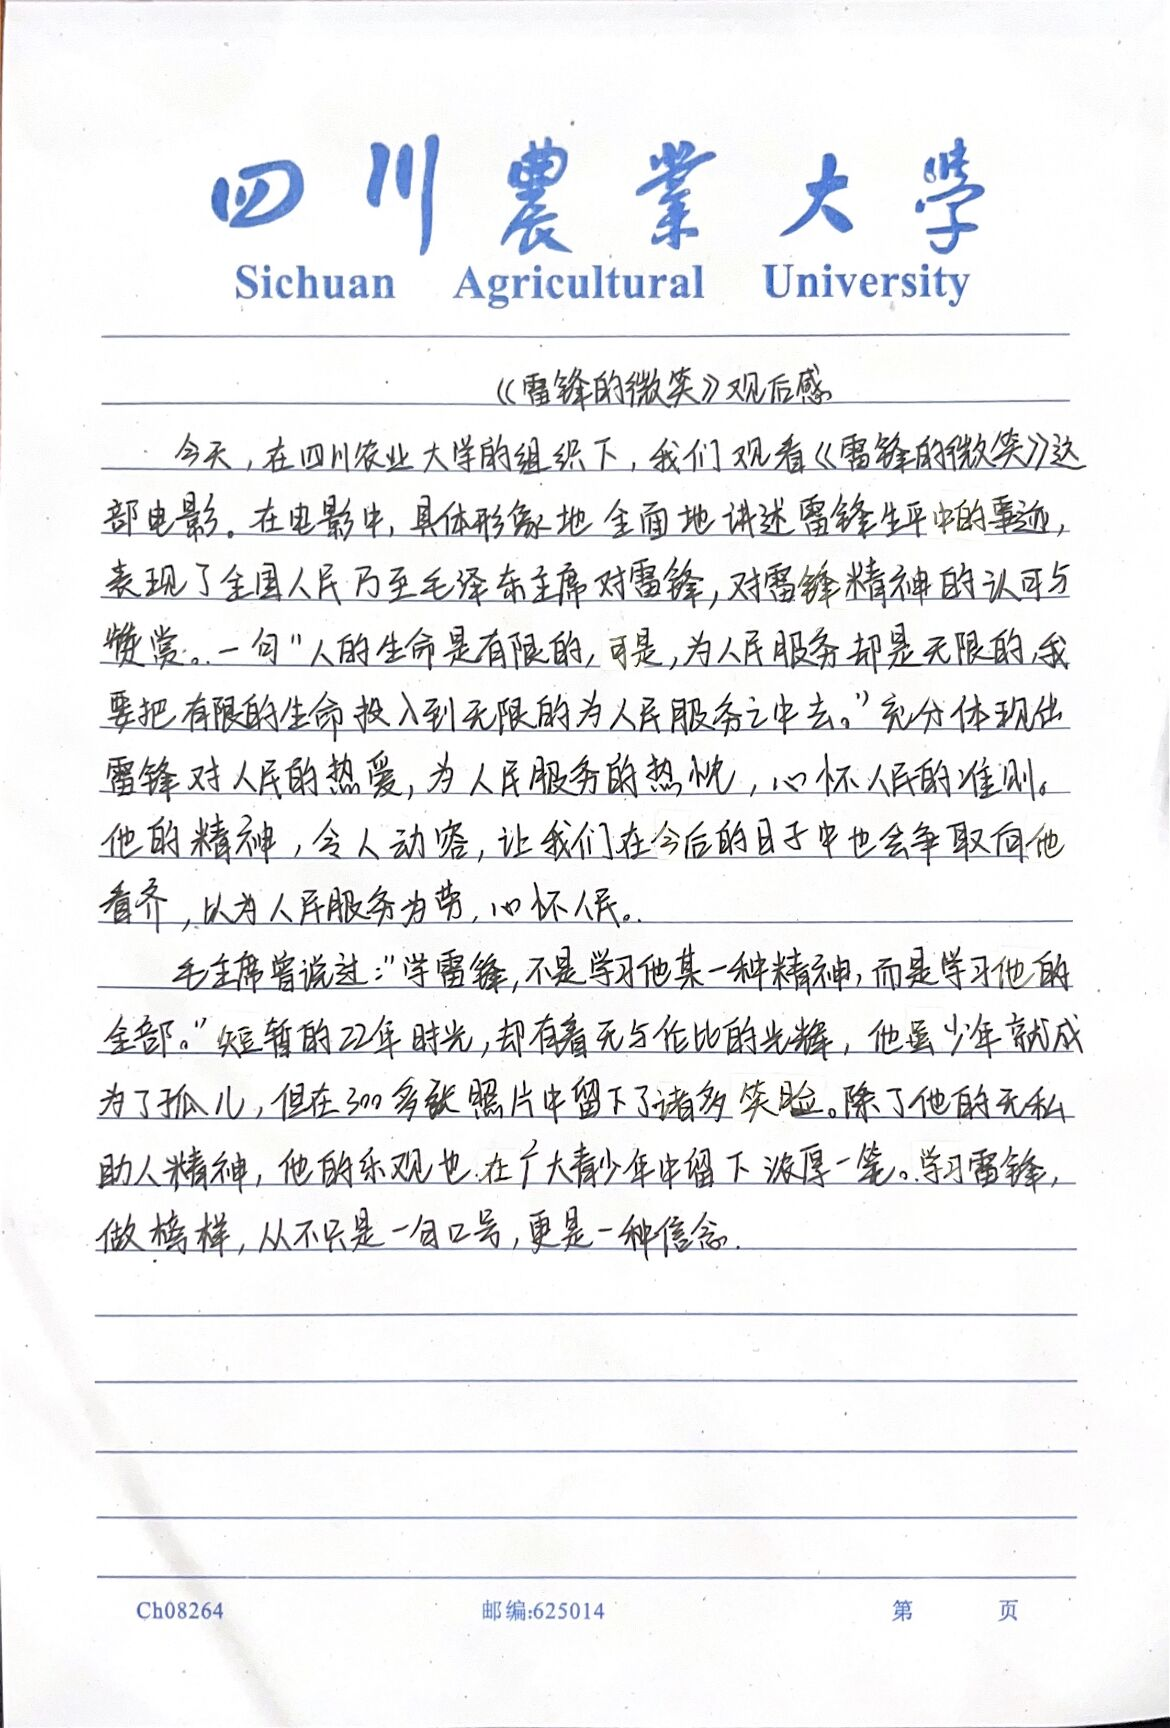 四川農業大學
Sichuan Agricultural University
《雷锋的微笑》观后感
今天，在四川农业大学的组织下，我们观看《雷锋的微笑》这
部电影。在电影中，具体形象地全面地讲述雷锋生平中的事迹，
表现了全国人民乃至毛泽东主席对雷锋，对雷锋精神的认可与
赞赏。一句"人的生命是有限的，可是，为人民服务却是无限的，我
要把有限的生命投入到无限的为人民服务之中去。"充分体现出
雷锋对人民的热爱，为人民服务的热忱，心怀人民的准则。
他的精神，令人动容，让我们在今后的日子中也会争取向他
看齐，以为人民服务为劳，心怀人民。
毛主席曾说过："学雷锋，不是学习他某一种精神，而是学习他的
全部。"短暂的22年时光，却有着无与伦比的光辉，他虽少年就成
为了孤儿，但在300多张照片中留下了诸多笑脸。除了他的无私
助人精神，他的乐观也在广大青少年中留下浓厚一笔。学习雷锋，
做榜样，从不只是一句口号，更是一种信念.
Ch08264 邮编:625014 第 页